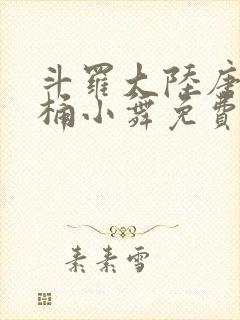 斗羅大陸唐
桶小舞免費
素素雪